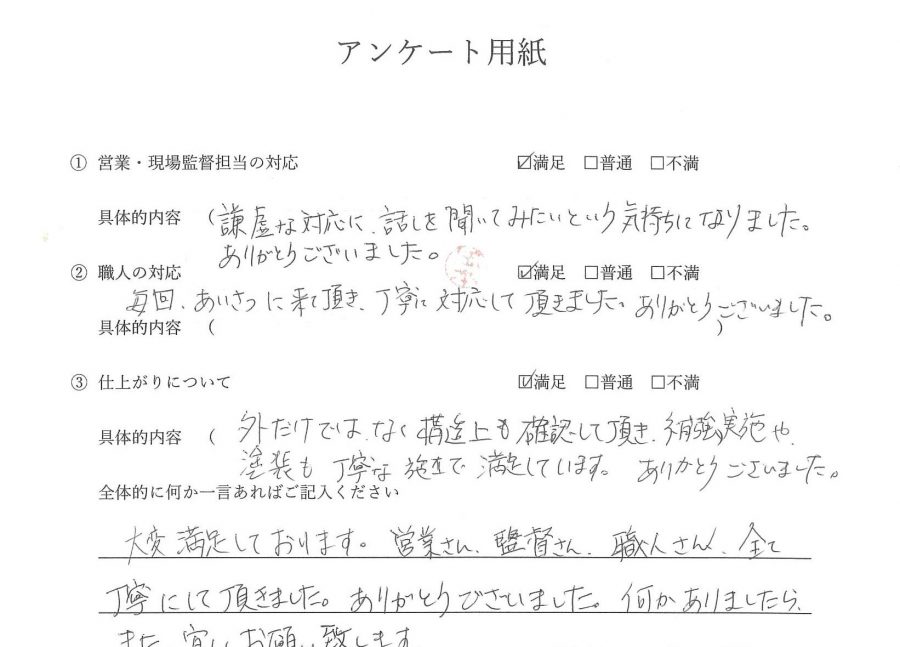 アンケート用紙
① 営業・現場監督担当の対応 ☑満足 □普通 □不満
具体的内容 ( 謙虚な対応に、話しを聞いてみたいという気持ちになりました。
ありがとうございました。
② 職人の対応 ☑満足 □普通 □不満
毎回、あいさつに来て頂き、丁寧に対応して頂きました。ありがとうございました。
具体的内容 ( )
③ 仕上がりについて ☑満足 □普通 □不満
具体的内容 ( 外だけではなく構造上も確認して頂き、補強実施や、
塗装も丁寧な施工で満足しています。ありがとうございました。
全体的に何か一言あればご記入ください
大変満足しております。営業さん、監督さん、職人さん、全て
丁寧にして頂きました。ありがとうございました。何かありましたら、
また、宜しくお願い致します